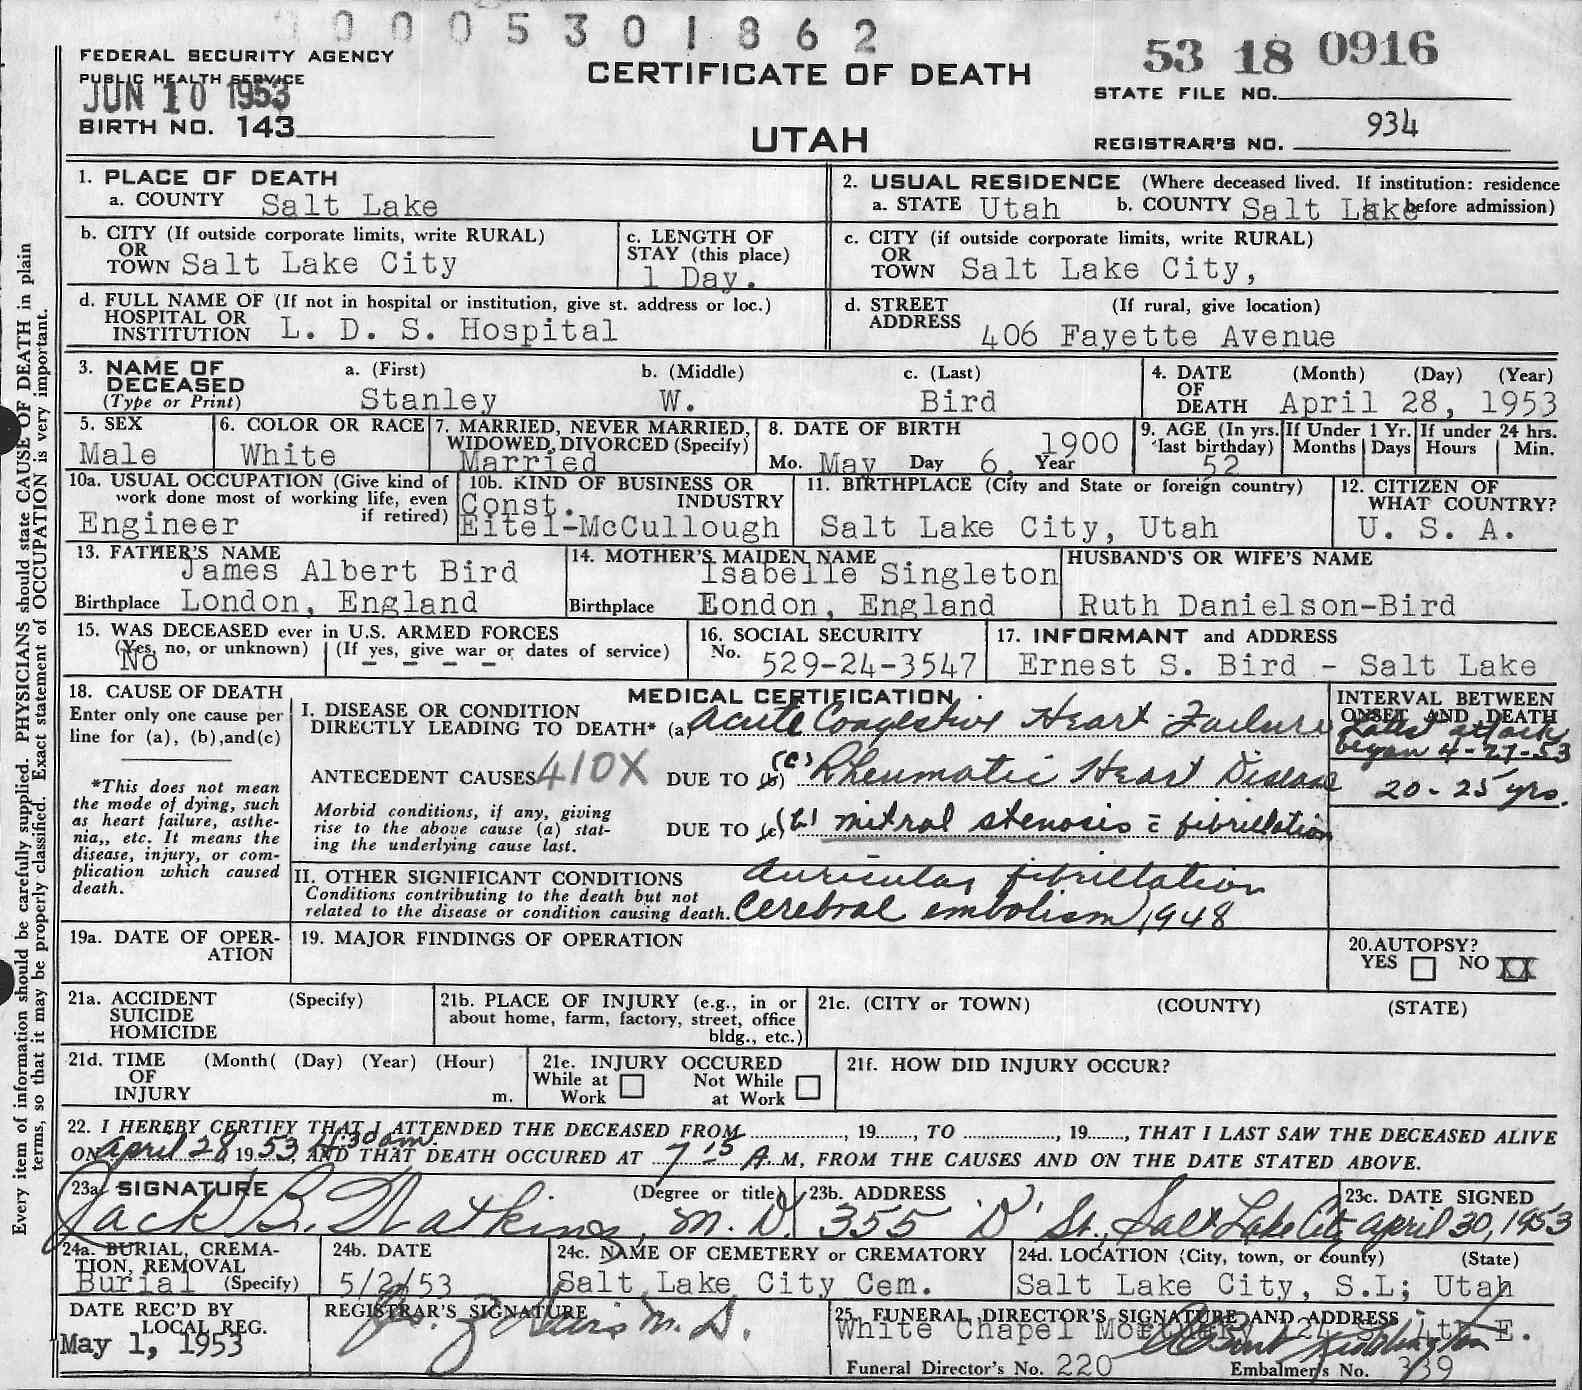 0 0 0 5 3 0 1 8 6 2
FEDERAL SECURITY AGENCY
PUBLIC HEALTH SERVICE
JUN 10 1953
BIRTH NO. 143
CERTIFICATE OF DEATH
UTAH
53 18 0916
STATE FILE NO.
934
REGISTRAR'S NO.
1. PLACE OF DEATH
a. COUNTY Salt Lake
2. USUAL RESIDENCE (Where deceased lived. If institution: residence
a. STATE Utah b. COUNTY Salt Lake before admission)
b. CITY (If outside corporate limits, write RURAL)
OR
TOWN Salt Lake City
c. LENGTH OF
STAY (this place)
1 Day.
c. CITY (if outside corporate limits, write RURAL)
OR
TOWN Salt Lake City,
d. FULL NAME OF (If not in hospital or institution, give st. address or loc.)
HOSPITAL OR
INSTITUTION L. D. S. Hospital
d. STREET (If rural, give location)
ADDRESS 406 Fayette Avenue
3. NAME OF a. (First) b. (Middle) c. (Last)
DECEASED
(Type or Print) Stanley W. Bird
4. DATE (Month) (Day) (Year)
OF
DEATH April 28, 1953
5. SEX
Male
6. COLOR OR RACE
White
7. MARRIED, NEVER MARRIED,
WIDOWED, DIVORCED (Specify)
Married
8. DATE OF BIRTH
Mo. May Day 6, Year 1900
9. AGE (In yrs.
last birthday)
52
If Under 1 Yr.
Months Days
If under 24 hrs.
Hours Min.
10a. USUAL OCCUPATION (Give kind of
work done most of working life, even
if retired)
Engineer
10b. KIND OF BUSINESS OR
INDUSTRY
Const.
Eitel-McCullough
11. BIRTHPLACE (City and State or foreign country)
Salt Lake City, Utah
12. CITIZEN OF
WHAT COUNTRY?
U. S. A.
13. FATHER'S NAME
James Albert Bird
Birthplace London, England
14. MOTHER'S MAIDEN NAME
Isabelle Singleton
Birthplace Eondon, England
HUSBAND'S OR WIFE'S NAME
Ruth Danielson-Bird
15. WAS DECEASED ever in U.S. ARMED FORCES
(Yes, no, or unknown) (If yes, give war or dates of service)
No - - - -
16. SOCIAL SECURITY
No. 529-24-3547
17. INFORMANT and ADDRESS
Ernest S. Bird - Salt Lake
18. CAUSE OF DEATH
Enter only one cause per
line for (a), (b), and (c)
*This does not mean
the mode of dying, such
as heart failure, asthe-
nia,, etc. It means the
disease, injury, or com-
plication which caused
death.
MEDICAL CERTIFICATION
I. DISEASE OR CONDITION
DIRECTLY LEADING TO DEATH* (a) Acute Congestive Heart Failure
ANTECEDENT CAUSES 410X DUE TO (b) (c) Rheumatic Heart Disease
Morbid conditions, if any, giving
rise to the above cause (a) stat-
ing the underlying cause last.
DUE TO (c) (b) mitral stenosis c̄ fibrillation
INTERVAL BETWEEN
ONSET AND DEATH
attack
began 4-27-53
20 - 25 yrs.
II. OTHER SIGNIFICANT CONDITIONS
Conditions contributing to the death but not
related to the disease or condition causing death.
Auricular fibrillation
Cerebral embolism, 1948
19a. DATE OF OPER-
ATION
19. MAJOR FINDINGS OF OPERATION
20. AUTOPSY?
YES NO XX
21a. ACCIDENT (Specify)
SUICIDE
HOMICIDE
21b. PLACE OF INJURY (e.g., in or
about home, farm, factory, street, office
bldg., etc.)
21c. (CITY or TOWN) (COUNTY) (STATE)
21d. TIME (Month( (Day) (Year) (Hour)
OF
INJURY m.
21e. INJURY OCCURED
While at Work
Not While at Work
21f. HOW DID INJURY OCCUR?
22. I HEREBY CERTIFY THAT I ATTENDED THE DECEASED FROM ............, 19......, TO ............, 19......, THAT I LAST SAW THE DECEASED ALIVE
ON April 28, 1953, 4:30 am. AND THAT DEATH OCCURED AT 7 15 A.M, FROM THE CAUSES AND ON THE DATE STATED ABOVE.
23a. SIGNATURE (Degree or title)
Jack B. Watkins, M. D.
23b. ADDRESS
355 'D' St., Salt Lake City
23c. DATE SIGNED
April 30, 1953
24a. BURIAL, CREMA-
TION, REMOVAL
Burial (Specify)
24b. DATE
5/2/53
24c. NAME OF CEMETERY or CREMATORY
Salt Lake City Cem.
24d. LOCATION (City, town, or county) (State)
Salt Lake City, S.L; Utah
DATE REC'D BY
LOCAL REG.
May 1, 1953
REGISTRAR'S SIGNATURE
M. D.
25. FUNERAL DIRECTOR'S SIGNATURE AND ADDRESS
White Chapel Mortuary 4th E.
Funeral Director's No. 220 Embalmer's No. 339
Every item of information should be carefully supplied. PHYSICIANS should state CAUSE OF DEATH in plain
terms, so that it may be properly classified. Exact statement of OCCUPATION is very important.